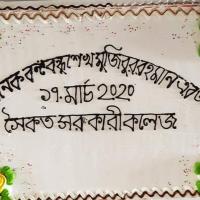 বঙ্গবন্ধু শেখ মুজিবুর রহমান
১৭ মার্চ 2020
সৈকত সরকারী কলেজ